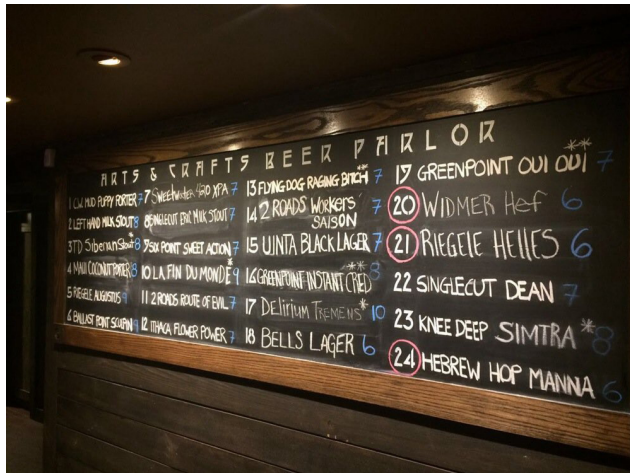 ARTS & CRAFTS BEER PARLOR
1 CW MUD PUPPY PORTER 7
2 LEFT HAND MILK STOUT 8
3 TD Siberian Stout* 8
4 MAUI COCONUT PORTER 8
5 RIEGELE AUGUSTUS 9
6 BALLAST POINT SCULPIN 9
7 Sweetwater 420 XPA 7
8 SINGLECUT ERIC MILK STOUT 7
9 SIX POINT SWEET ACTION 7
10 LA FIN DU MONDE* 9
11 2 ROADS ROUTE OF EVIL 7
12 ITHACA FLOWER POWER 7
13 FLYING DOG RAGING BITCH** 7
14 2 ROADS Workers 7
SAISON
15 UINTA BLACK LAGER 7
16 GREENPOINT INSTANT CRED** 8
17 Delirium Tremens* 10
18 BELLS LAGER 6
19 GREENPOINT OUI OUI** 7
20 WIDMER Hef 6
21 RIEGELE HELLES 6
22 SINGLECUT DEAN 7
23 KNEE DEEP SIMTRA* 8
24 HEBREW HOP MANNA 6